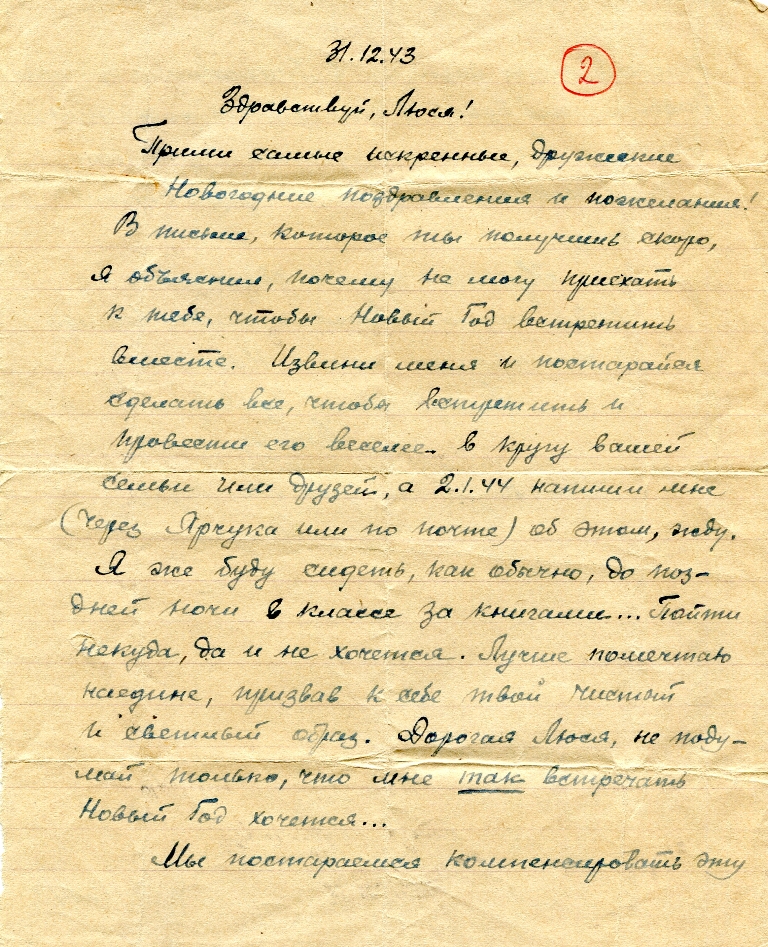 31.12.43
2
Здравствуй, Люся!
Прими самые искренные, дружеские
Новогодние поздравления и пожелания!
В письме, которое ты получишь скоро,
я объяснил, почему не могу приехать
к тебе, чтобы Новый Год встретить
вместе. Извини меня и постарайся
сделать все, чтобы встретить и
провести его веселее в кругу вашей
семьи или друзей, а 2.1.44 напиши мне
(через Ярчука или по почте) об этом, жду.
Я же буду сидеть, как обычно, до поз-
дней ночи в классе за книгами... Пойти
некуда, да и не хочется. Лучше помечтаю
наедине, призвав к себе твой чистый
и светлый образ. Дорогая Люся, не поду-
май только, что мне так встречать
Новый Год хочется...
Мы постараемся компенсировать эту